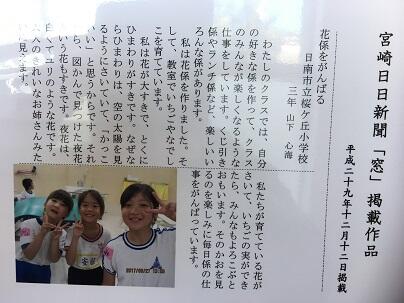 宮崎日日新聞「窓」掲載作品
平成二十九年十二月十二日掲載
花係をがんばる
日南市立桜ケ丘小学校
三年 山下 心海
わたしのクラスでは、自分
の好きな係を作って、クラス
のみんなが楽しくなるような
仕事をしています。くじ引き
係やランチ係など、楽しいい
ろんな係があります。
私は花係を作りました。そ
して、教室でいちごやなでし
こを育てています。
私は花が大すきで、とくに
ひまわりがすきです。なぜな
らひまわりは、空の太陽を見
るようにさいていて、「かっこ
いい」と思うからです。それ
から、図かんで見つけた夜花
いう花もすきです。夜花は、
白くてユリのような花です。
大人のきれいなお姉さんみた
いに見えます。
私たちが育てている花が
さいて、いちごの実ができ
たら、みんなもよろこぶと
おもいます。そのかおを見
るのを楽しみに毎日係の仕
事をがんばっています。
2017/09/27